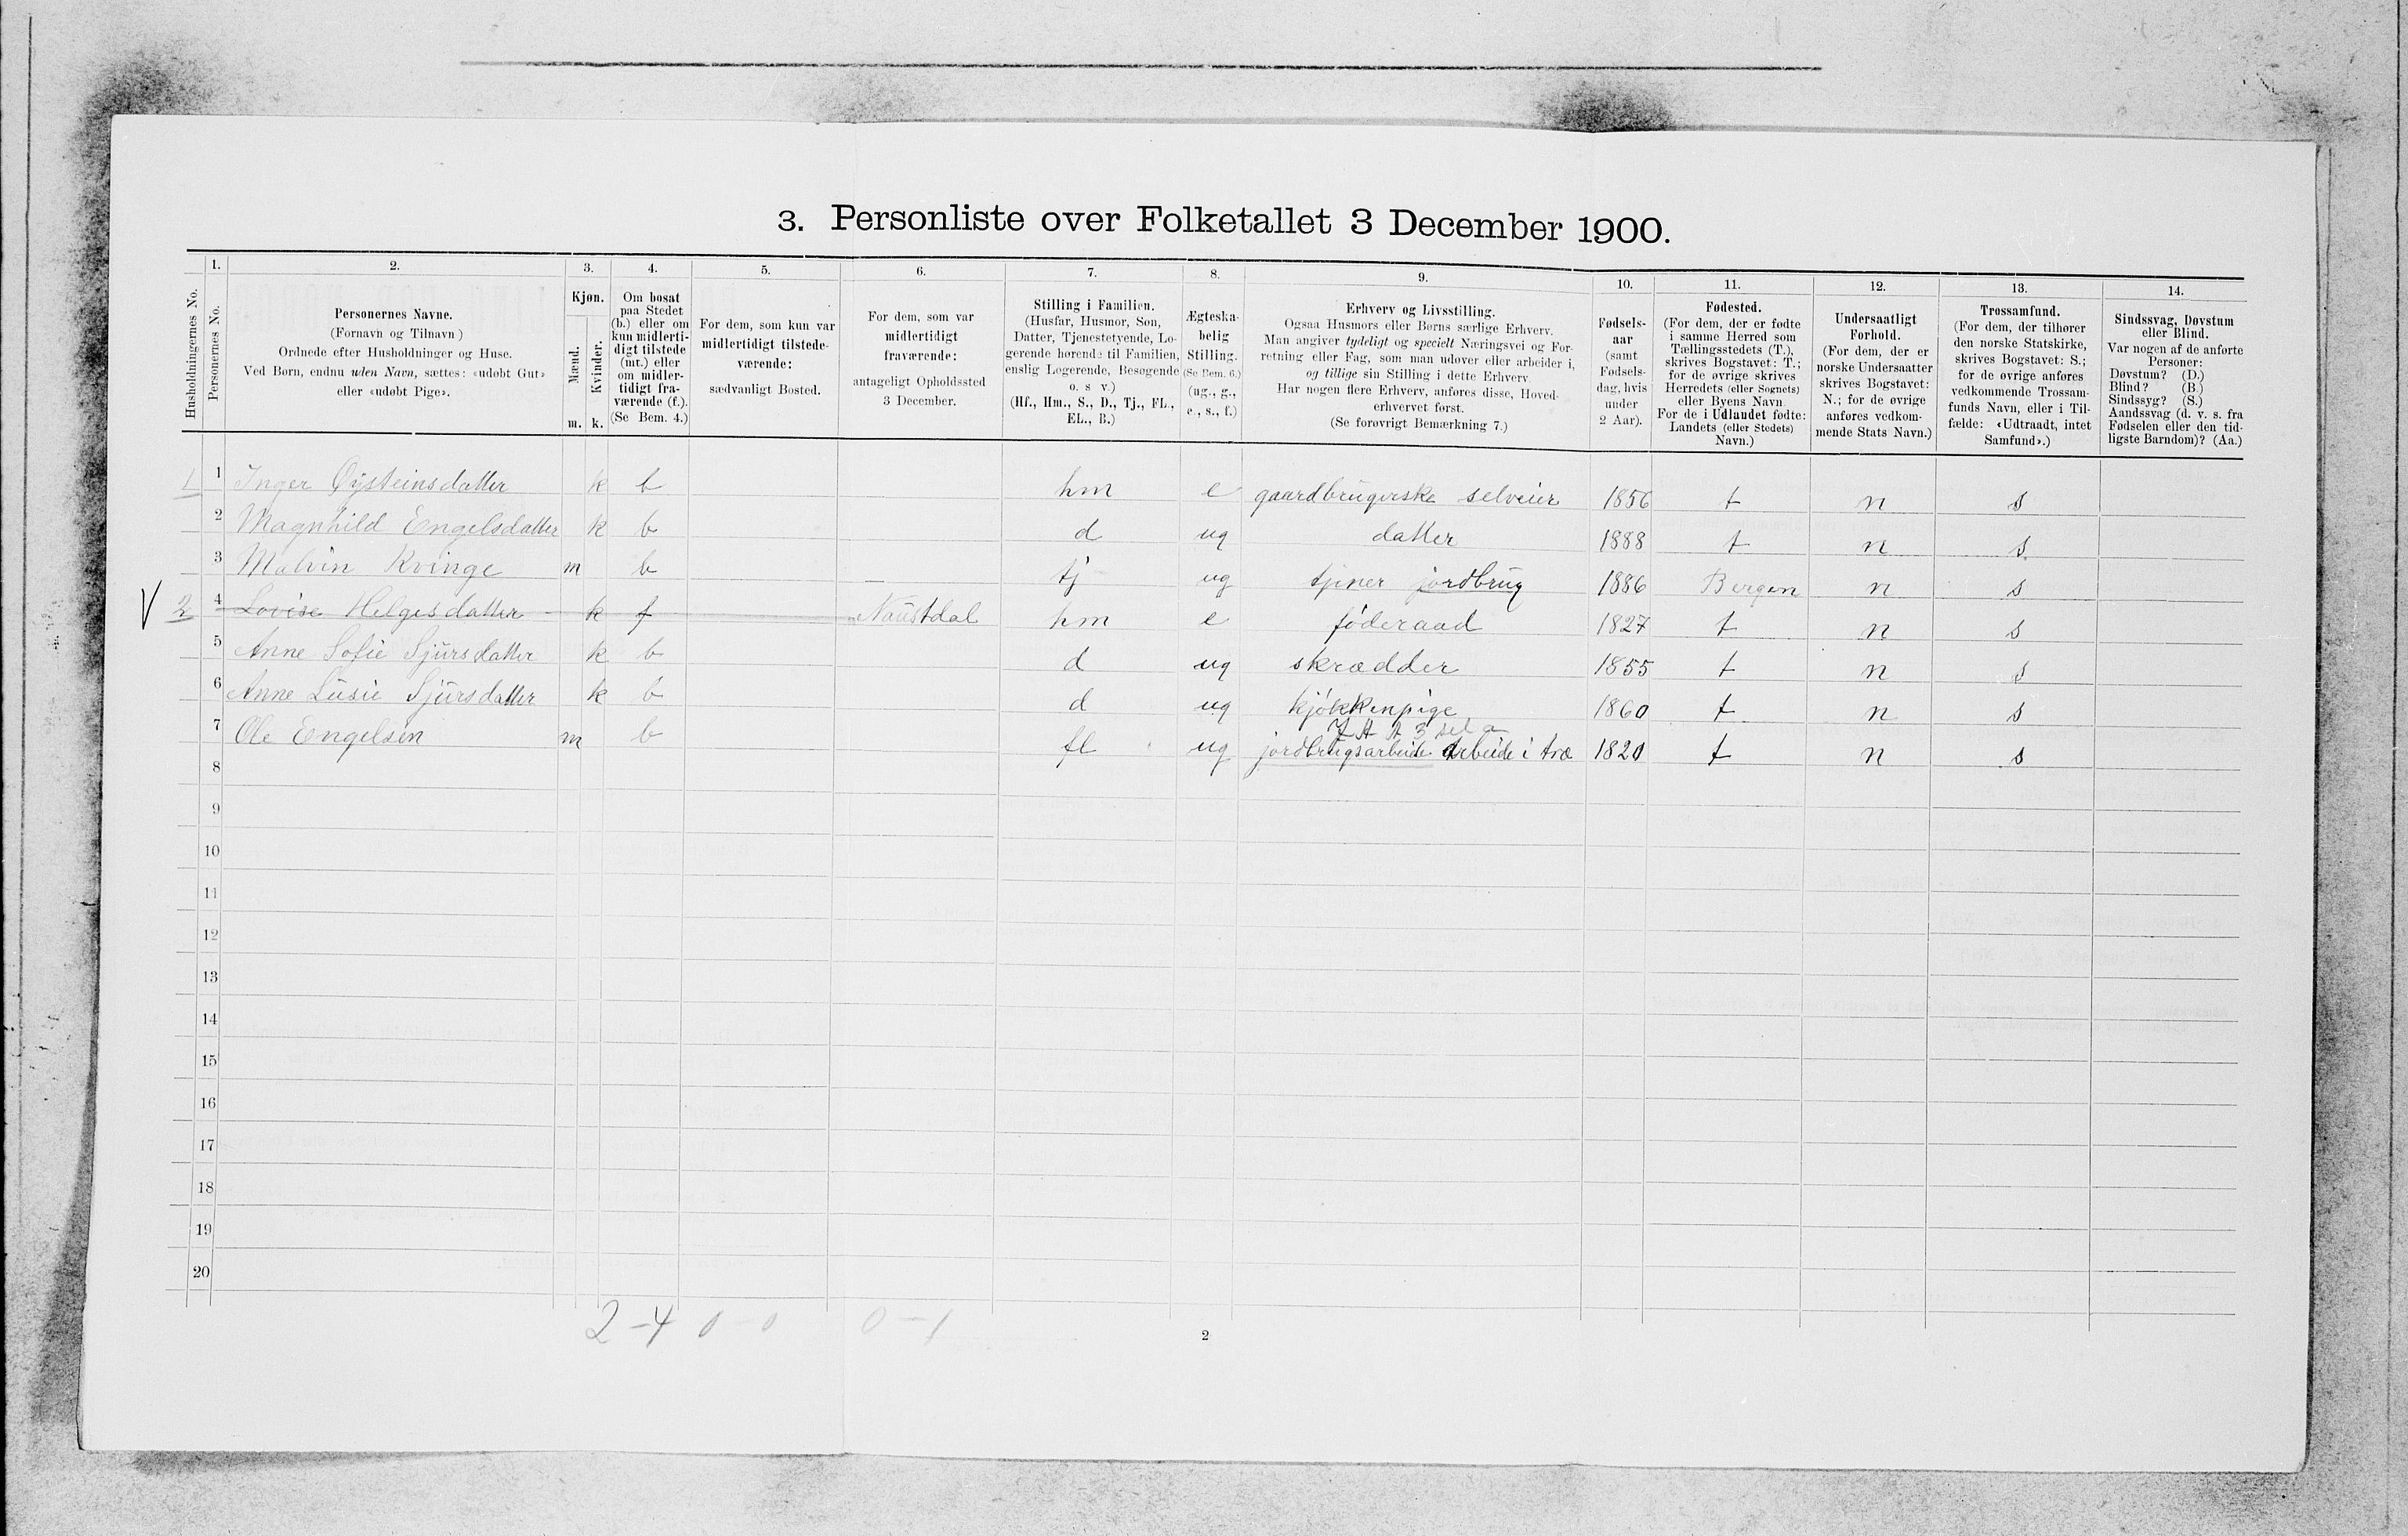 3. Personliste over Folketallet 3 December 1900.
Husholdningernes No.
1.
Personernes No.
2.
Personernes Navne.
(Fornavn og Tilnavn)
Ordnede efter Husholdninger og Huse.
Ved Børn, endnu uden Navn, sættes: «udøbt Gut»
eller «udøbt Pige».
3.
Kjøn.
Mænd.
Kvinder.
m. k.
4.
Om bosat
paa Stedet
(b.) eller om
kun midlerti-
digt tilstede
(mt.) eller
om midler-
tidigt fra-
værende (f.).
(Se Bem. 4.)
5.
For dem, som kun var
midlertidigt tilstede-
værende:
sædvanligt Bosted.
6.
For dem, som var
midlertidigt
fraværende:
antageligt Opholdssted
3 December.
7.
Stilling i Familien.
(Husfar, Husmor, Søn,
Datter, Tjenestetyende, Lo-
gerende hørende til Familien,
enslig Logerende, Besøgende
o. s v.)
(Hf., Hm., S., D., Tj., FL.,
EL., B.)
8.
Ægteska-
belig
Stilling.
(Se Bem. 6.)
(ug., g.,
e., s., f.)
9.
Erhverv og Livsstilling.
Ogsaa Husmors eller Børns særlige Erhverv.
Man angiver tydeligt og specielt Næringsvei og For-
retning eller Fag, som man udøver eller arbeider i,
og tillige sin Stilling i dette Erhverv
Har nogen flere Erhverv, anføres disse, Hoved-
erhvervet først.
(Se forøvrigt Bemærkning 7.)
10.
Fødsels-
aar
(samt
Fødsels-
dag, hvis
under
2 Aar).
11.
Fødested.
(For dem, der er fødte
i samme Herred som
Tællingsstedets (T.),
skrives Bogstavet: T.;
for de øvrige skrives
Herredets (eller Sognets)
eller Byens Navn.
For de i Udlandet fødte:
Landets (eller Stedets)
Navn.)
12.
Undersaatligt
Forhold.
(For dem, der er
norske Undersaatter
skrives Bogstavet:
N.; for de øvrige
anføres vedkom-
mende Stats Navn.)
13.
Trossamfund.
(For dem, der tilhører
den norske Statskirke,
skrives Bogstavet: S.;
for de øvrige anføres
vedkommende Trossam-
funds Navn, eller i Til-
fælde: «Udtraadt, intet
Samfund».)
14.
Sindssvag, Døvstum
eller Blind.
Var nogen af de anførte
Personer:
Døvstum? (D.)
Blind? (B.)
Sindssyg? (S.)
Aandssvag (d. v. s. fra
Fødselen eller den tid-
ligste Barndom)? (Aa.)
1 1 Inger Øysteinsdatter k b hm e gaardbrugerske selveier 1856 t n s
2 Magnhild Engelsdatter k b d ug datter 1888 t n s
3 Malvin Kvinge m b tj ug tjener jordbrug 1886 Bergen n s
V 2 4 Lovise Helgesdatter k f Naustdal hm e føderaad 1827 t n s
5 Anne Sofie Sjursdatter k b d ug skrædder 1855 t n s
6 Anne Lusie Sjursdatter k b d ug kjøkkenpige 1860 t n s
7 Ole Engelsen m b fl ug jordbrugsarbeide Arbeide i træ 1820 t n s
8
9
10
11
12
13
14
15
16
17
18
19
20
2-4 0-0 0-1
2